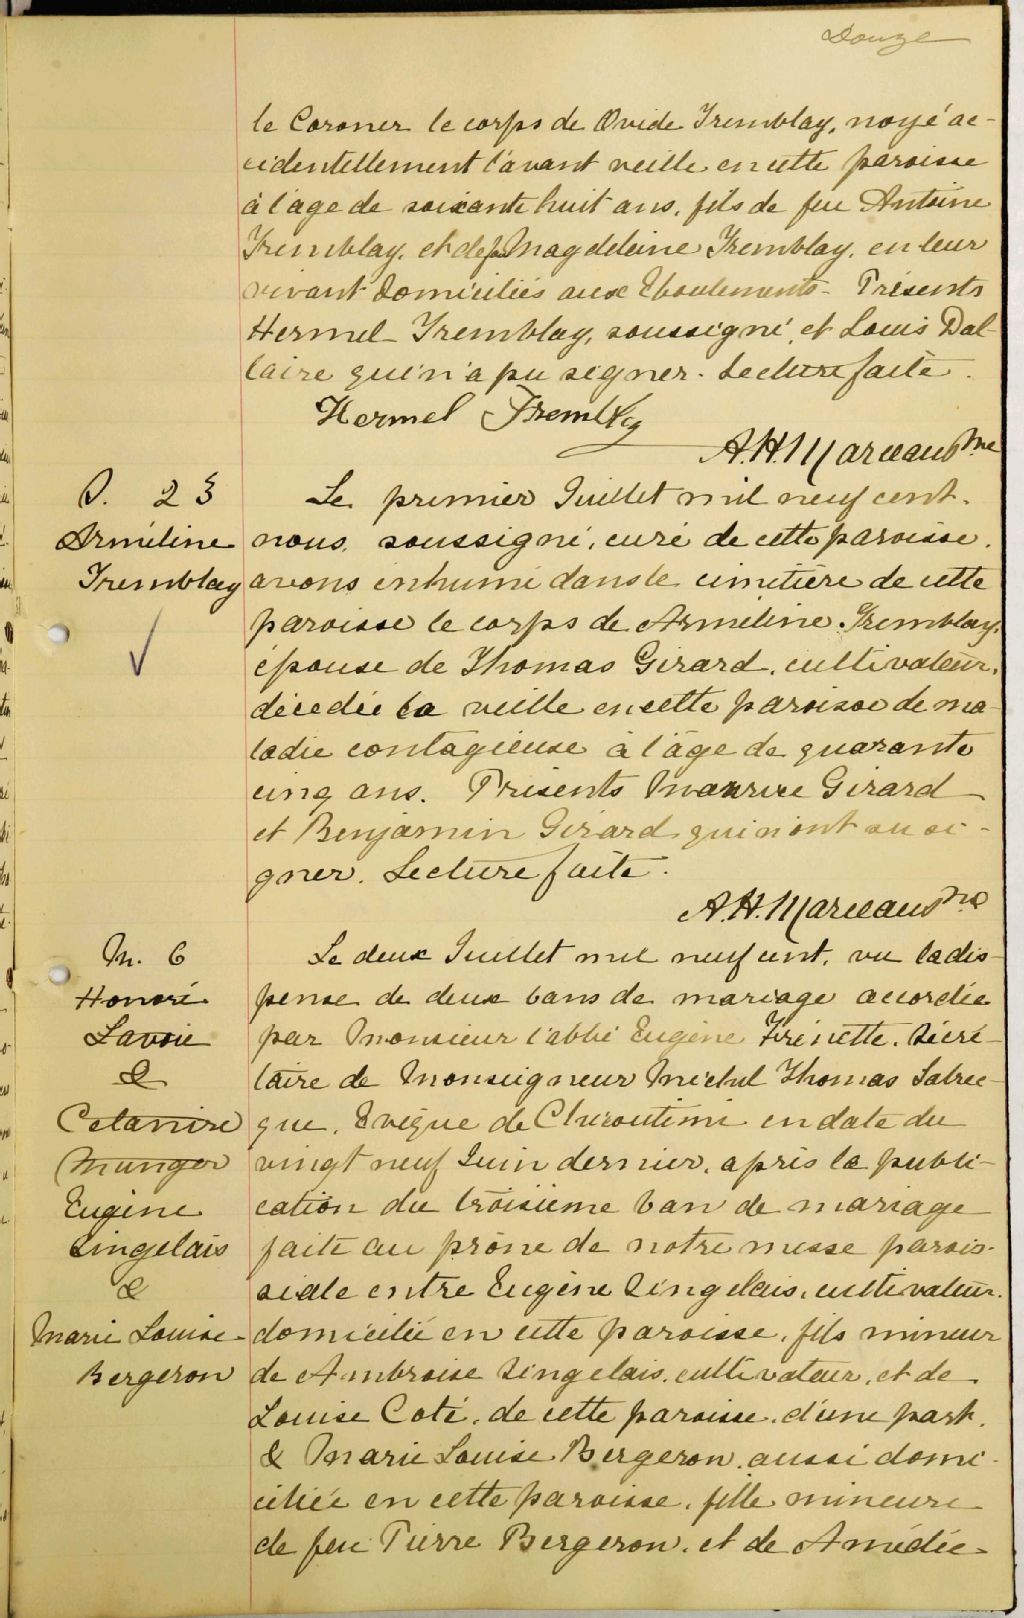 Douze
le Coroner le corps de Ovide Tremblay, noyé ac-
cidentellement l'avant veille en cette paroisse
à l'age de soixante huit ans, fils de feu Antoine
Tremblay, et de feu Magdeleine Tremblay, en leur
vivant domiciliés aux Eboulements - Présents
Hermel Tremblay, soussigné, et Louis Dal-
laire qui n'a pu signer. Lecture faite.
Hermel Tremblay
A.H. Marceau Ptre
S. 23
Arméline
Tremblay
Le premier Juillet mil neuf cent.
nous, soussigné, curé de cette paroisse,
avons inhumé dans le cimetière de cette
paroisse le corps de Arméline Tremblay,
épouse de Thomas Girard, cultivateur,
décédée la veille en cette paroisse de ma-
ladie contagieuse à l'âge de quarante
cinq ans. Présents Maurice Girard
et Benjamin Girard qui n'ont su si-
gner. Lecture faite.
A.H. Marceau Ptre
M. 6
Honoré
Lavoie
&
Celanire
Munger
Eugène
Singelais
&
Marie Louise
Bergeron
Le deux Juillet mil neuf cent, vu la dis-
pense de deux bans de mariage accordée
par Monsieur l'abbé Eugène Frénette, Sécré-
taire de Monseigneur Michel Thomas Labrec-
que, Evêque de Chicoutimi en date du
vingt neuf Juin dernier, après la publi-
cation du troisième ban de mariage
faite au prône de notre messe parois-
siale entre Eugène Singelais, cultivateur,
domicilié en cette paroisse, fils mineur
de Ambroise Singelais, cultivateur, et de
Louise Coté, de cette paroisse, d'une part,
& Marie Louise Bergeron, aussi domi-
ciliée en cette paroisse, fille mineure
de feu Pierre Bergeron, et de Amédée